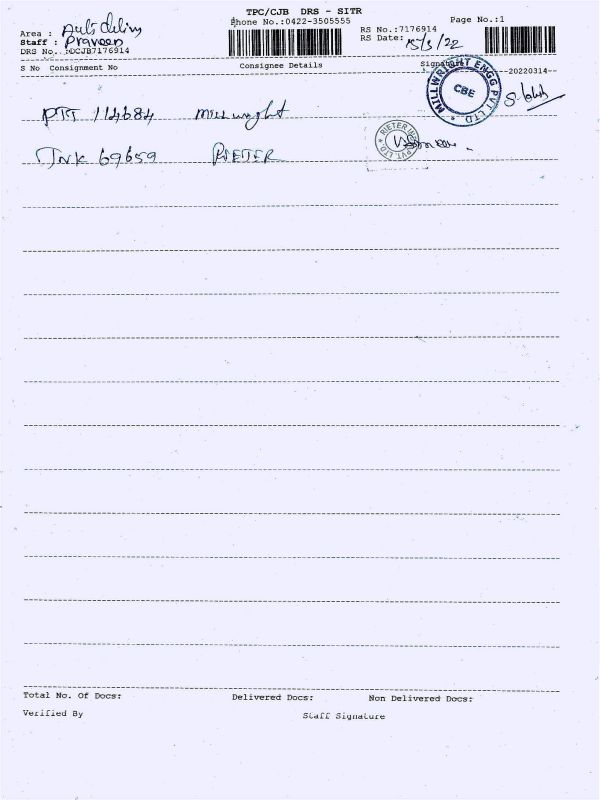 TPC/CJB DRS - SITR
Area : Auto delivy
Phone No.:0422-3505555
Page No.:1
Staff : Praveen
RS No.:7176914
DRS No. :DCJB7176914
RS Date: 15/3/22
S No Consignment No
Consignee Details
Signature
20220314
MILLWRIGHT ENGG PVT LTD
CBE
PTT 114684 Millwright
RIETER
PVT. LTD
TNK 69659 RIETER
Total No. Of Docs:
Delivered Docs:
Non Delivered Docs:
Verified By
Staff Signature